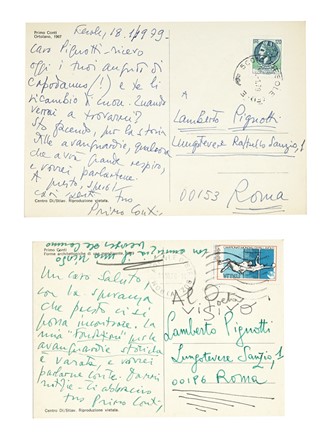 Primo Conti
Ortolano, 1981
Fiesole, 18.1.1979.
Caro Pignotti - ricevo
oggi i tuoi auguri di
Capodanno! e te li
ricambio di cuore. Quando
verrai a trovarmi?
Sto facendo, per la storia
delle avanguardie, qualcosa
che avrà grande respiro,
e vorrei parlartene.
A presto, spero!
Cari saluti tuo
Primo Conti
Centro Di/Stiav. Riproduzione vietata.
Lamberto Pignotti
Lungotevere Raffaello Sanzio, 1
00153 Roma
Primo Conti
Un caro saluto
con la speranza
che presto ci si
possa incontrare. La
mia "Fondazione" per le
avanguardie storiche
è varata e vorrei
parlarne con te.
Ti abbraccio
tuo Primo Conti
Centro Di/Stiav. Riproduzione vietata.
Al Poeta
Visivo
Lamberto Pignotti
Lungotevere Sanzio, 1
00196 Roma